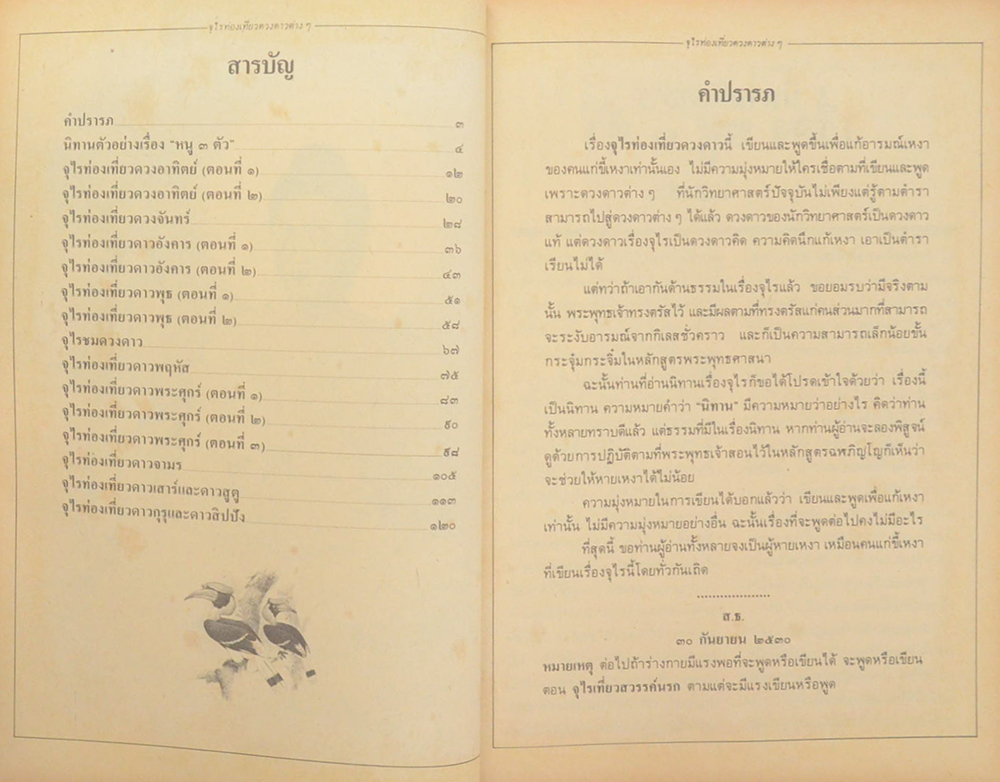 จุไรท่องเที่ยวดวงดาวต่าง ๆ
สารบัญ
คำปรารภ ๓
นิทานตัวอย่างเรื่อง “หนู ๓ ตัว” ๔
จุไรท่องเที่ยวดวงอาทิตย์ (ตอนที่ ๑) ๑๒
จุไรท่องเที่ยวดวงอาทิตย์ (ตอนที่ ๒) ๒๐
จุไรท่องเที่ยวดวงจันทร์ ๒๘
จุไรท่องเที่ยวดาวอังคาร (ตอนที่ ๑) ๓๖
จุไรท่องเที่ยวดาวอังคาร (ตอนที่ ๒) ๔๓
จุไรท่องเที่ยวดาวพุธ (ตอนที่ ๑) ๕๑
จุไรท่องเที่ยวดาวพุธ (ตอนที่ ๒) ๕๘
จุไรชมดวงดาว ๖๗
จุไรท่องเที่ยวดาวพฤหัส ๗๕
จุไรท่องเที่ยวดาวพระศุกร์ (ตอนที่ ๑) ๘๓
จุไรท่องเที่ยวดาวพระศุกร์ (ตอนที่ ๒) ๙๐
จุไรท่องเที่ยวดาวพระศุกร์ (ตอนที่ ๓) ๙๘
จุไรท่องเที่ยวดาวจามร ๑๐๕
จุไรท่องเที่ยวดาวเสาร์และดาวสูตู ๑๑๓
จุไรท่องเที่ยวดาวกุรุและดาวสิปปัง ๑๒๐
จุไรท่องเที่ยวดวงดาวต่าง ๆ
คำปรารภ
เรื่องจุไรท่องเที่ยวดวงดาวนี้ เขียนและพูดขึ้นเพื่อแก้อารมณ์เหงา
ของคนแก่ขี้เหงาเท่านั้นเอง ไม่มีความมุ่งหมายให้ใครเชื่อตามที่เขียนและพูด
เพราะดวงดาวต่าง ๆ ที่นักวิทยาศาสตร์ปัจจุบันไม่เพียงแต่รู้ตามตำรา
สามารถไปสู่ดวงดาวต่าง ๆ ได้แล้ว ดวงดาวของนักวิทยาศาสตร์เป็นดวงดาว
แท้ แต่ดวงดาวเรื่องจุไรเป็นดวงดาวคิด ความคิดนึกแก้เหงา เอาเป็นตำรา
เรียนไม่ได้
แต่ทว่าถ้าเอากันด้านธรรมในเรื่องจุไรแล้ว ขอยอมรบว่ามีจริงตาม
นั้น พระพุทธเจ้าทรงตรัสไว้ และมีผลตามที่ทรงตรัสแก่คนส่วนมากที่สามารถ
จะระงับอารมณ์จากกิเลสชั่วคราว และก็เป็นความสามารถเล็กน้อยขั้น
กระจุ๋มกระจิ๋มในหลักสูตรพระพุทธศาสนา
ฉะนั้นท่านที่อ่านนิทานเรื่องจุไรก็ขอได้โปรดเข้าใจด้วยว่า เรื่องนี้
เป็นนิทาน ความหมายคำว่า “นิทาน” มีความหมายว่าอย่างไร คิดว่าท่าน
ทั้งหลายทราบดีแล้ว แต่ธรรมที่มีในเรื่องนิทาน หากท่านผู้อ่านจะลองพิสูจน์
ดูด้วยการปฏิบัติตามที่พระพุทธเจ้าสอนไว้ในหลักสูตรฉฬภิญโญก็เห็นว่า
จะช่วยให้หายเหงาได้ไม่น้อย
ความมุ่งหมายในการเขียนได้บอกแล้วว่า เขียนและพูดเพื่อแก้เหงา
เท่านั้น ไม่มีความมุ่งหมายอย่างอื่น ฉะนั้นเรื่องที่จะพูดต่อไปคงไม่มีอะไร
ที่สุดนี้ ขอท่านผู้อ่านทั้งหลายจงเป็นผู้หายเหงา เหมือนคนแก่ขี้เหงา
ที่เขียนเรื่องจุไรนี้โดยทั่วกันเถิด
...................
ส.ธ.
๓๐ กันยายน ๒๕๓๐
หมายเหตุ ต่อไปถ้าร่างกายมีแรงพอที่จะพูดหรือเขียนได้ จะพูดหรือเขียน
ตอน จุไรเที่ยวสวรรค์นรก ตามแต่จะมีแรงเขียนหรือพูด